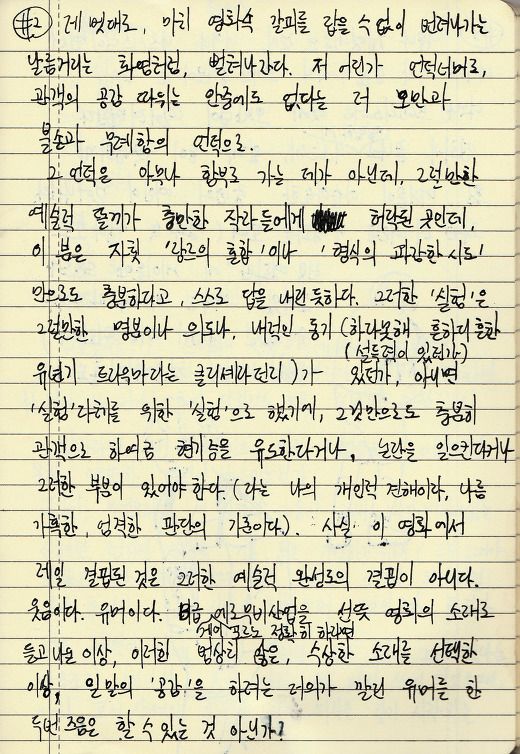 #2 제멋대로, 마치 영화속 갈피를 잡을 수 없이 번져나가는
날름거리는 화염처럼, 벌려나간다. 저 어딘가 언덕너머로,
관객의 공감 따위는 안중에도 없다는 더 오만과
불손과 무례함의 언덕으로.
그 언덕은 아무나 함부로 가는 데가 아닌데, 그럴만한
예술적 똘끼가 충만한 작가들에게 허락된 곳인데,
이 분은 자칫 '장르의 혼합'이나 '형식의 과감한 시도'
만으로도 충분하다고, 스스로 답을 내린 듯하다. 그러한 '실험'은
그럴만한 명분이나 의도나, 내적인 동기 (하다못해 흔하디 흔한
(설득력이 있던가)
유년기 트라우마라는 클리셰라던지)가 있던가, 아니면
'실험'자체를 위한 '실험'으로 했기에, 그것만으로도 충분히
관객으로 하여금 현기증을 유도한다거나, 논란을 일으킨다거나
그러한 부분이 있어야 한다 (라는 나의 개인적 견해이자, 나름
가혹한, 엄격한 판단의 기준이다.). 사실 이 영화에서
제일 결핍된 것은 그러한 예술적 완성도의 결핍이 아니다.
웃음이다. 유머이다. B급 에로무비산업을 선뜻 영화의 소재로
게이 포르노 정확히 하자면
들고 나온 이상, 이러한 범상치 않은, 수상한 소재를 선택한
이상, 일말의 '공감'을 하려는 의지가 깔린 유머를 한
두번 즈음은 할 수 있는 것 아닌가?